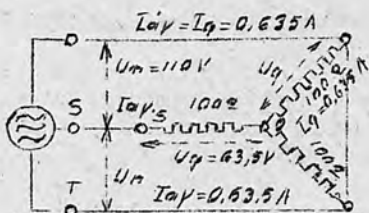 Iáv = Iq = 0,635A
Um = 110V
Uq
100Ω
Iq = 0,635A
S
Iáv. S
100Ω
Uq = 63,5V
100Ω
Um
T
Iáv = 0,63.5A